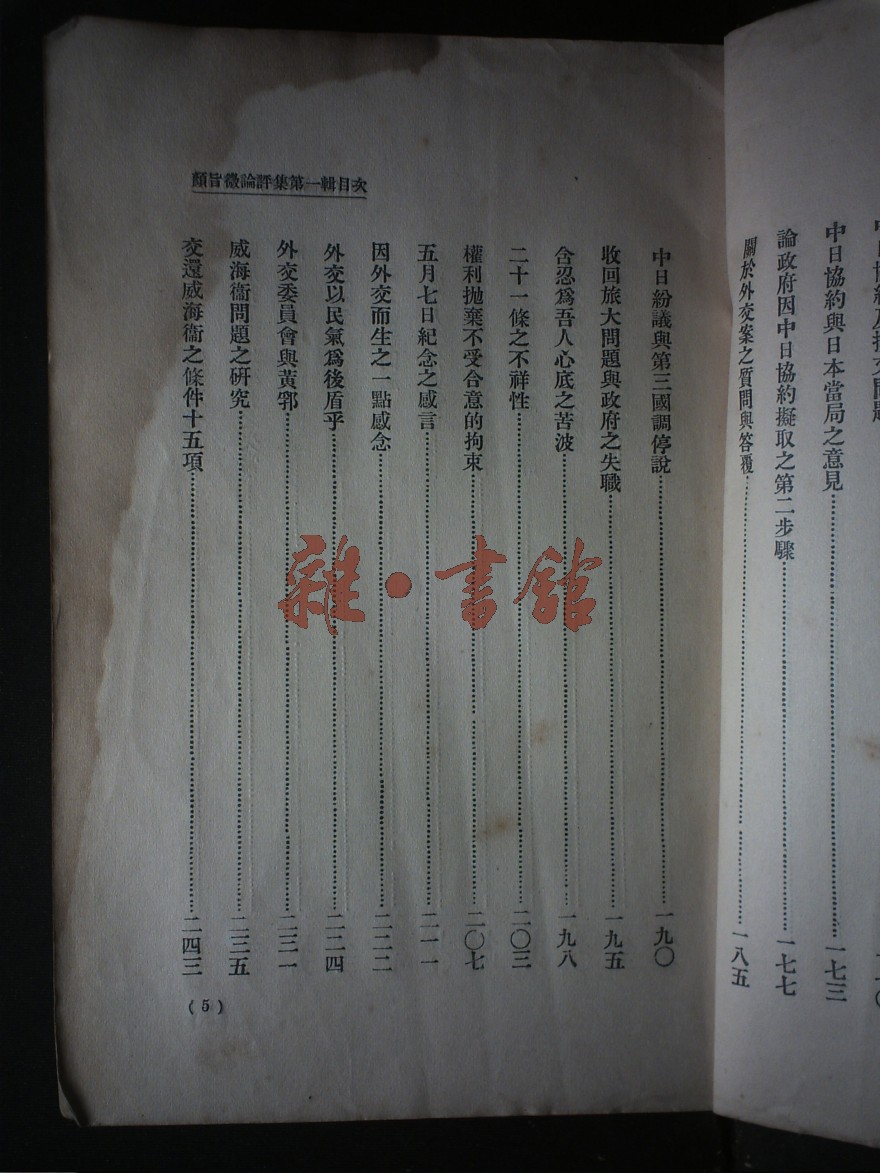 論政府因中日協約擬取之第二步驟……一七七
中日協約與日本當局之意見……一七三
關於外交案之質問與答覆……一八五
顏旨微論評集第一輯目次
中日紛議與第三國調停說……一九〇
收回旅大問題與政府之失職……一九五
含忍爲吾人心底之苦波……一九八
二十一條之不祥性……二〇三
權利抛棄不受合意的拘束……二〇七
五月七日紀念之感言……二一一
因外交而生之一點感念……二二二
外交以民氣爲後盾乎……二二四
外交委員會與黃郛……二三一
威海衞問題之研究……二三五
交還威海衞之條件十五項……二四三
(5)
雜·書館